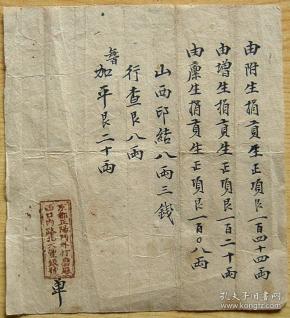 由附生捐貢生正項艮一百四十四兩
由增生捐貢生正項艮一百二十兩
由廩生捐貢生正項艮一百〇八兩
山西印結八兩三錢
行查艮八兩
加平艮二十兩
單